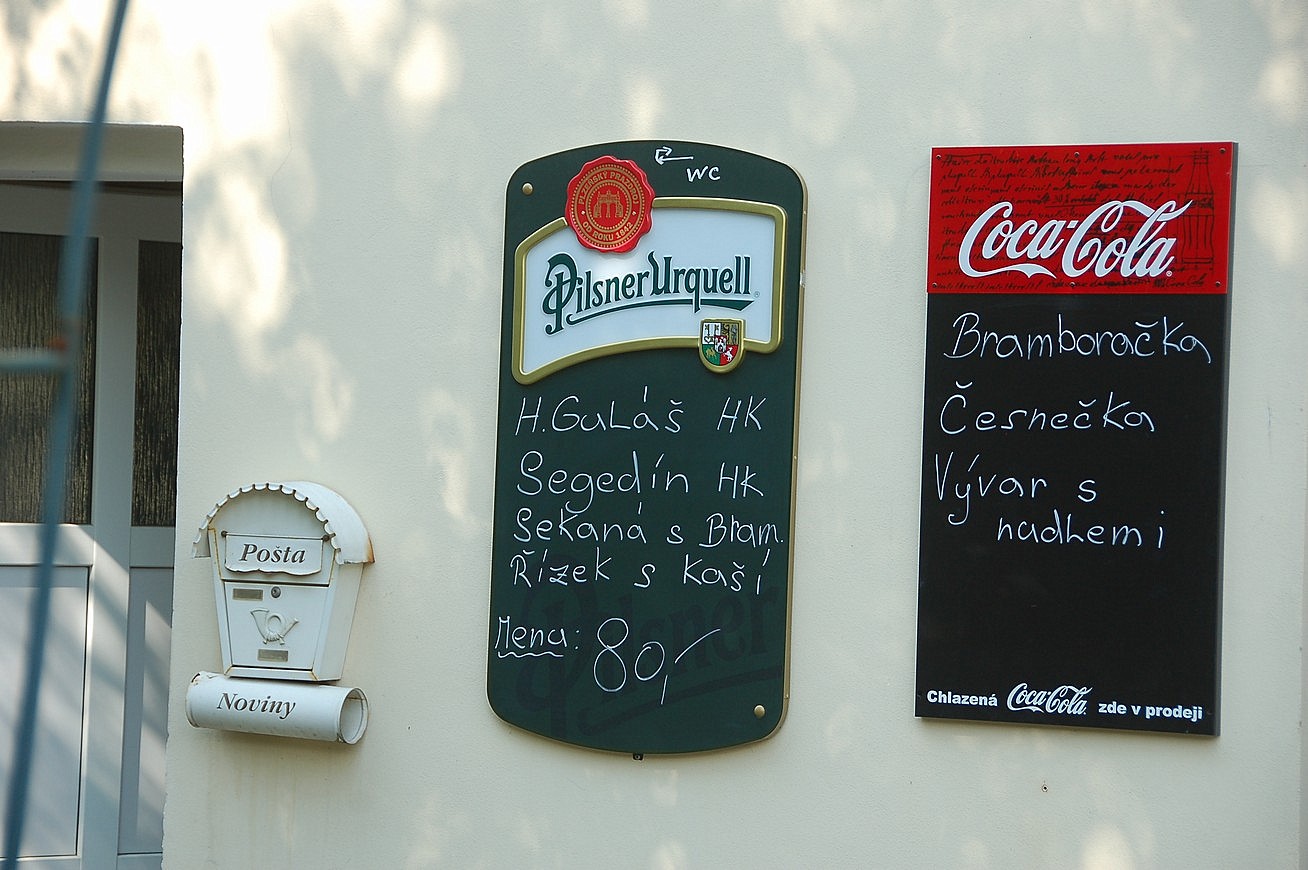 Pošta
Noviny
WC
PLZEŇSKÝ PRAZDROJ
OD ROKU 1842
Pilsner Urquell
H. GuLáš HK
Segedín HK
Sekaná s Bram.
Řízek s kaší
Mena: 80,-
Pilsner
Coca-Cola
Bramboračka
Česnečka
Vývar s
nudLemi
Chlazená Coca-Cola zde v prodeji